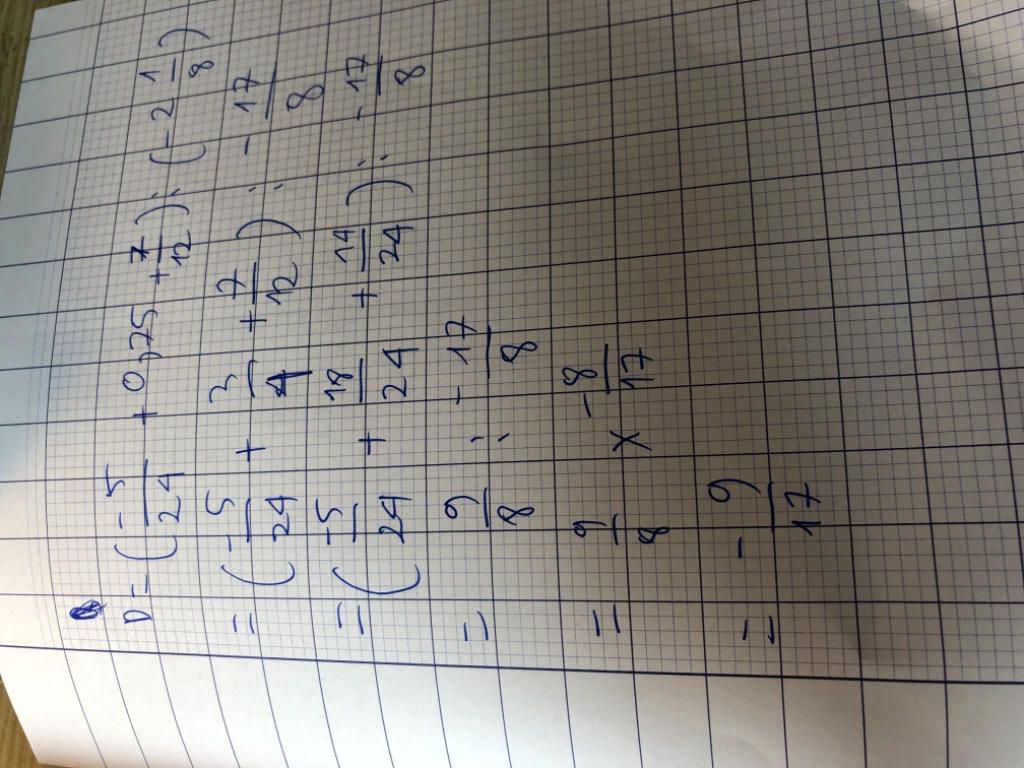 D = (-5/24 + 0,75 + 7/12) : (-2 1/8)
= (-5/24 + 3/4 + 7/12) : -17/8
= (-5/24 + 18/24 + 14/24) : -17/8
= 9/8 : -17/8
= 9/8 x -8/17
= -9/17